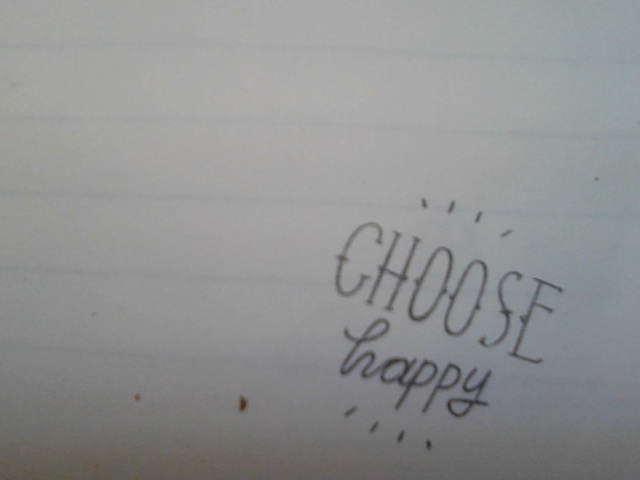 CHOOSE
happy